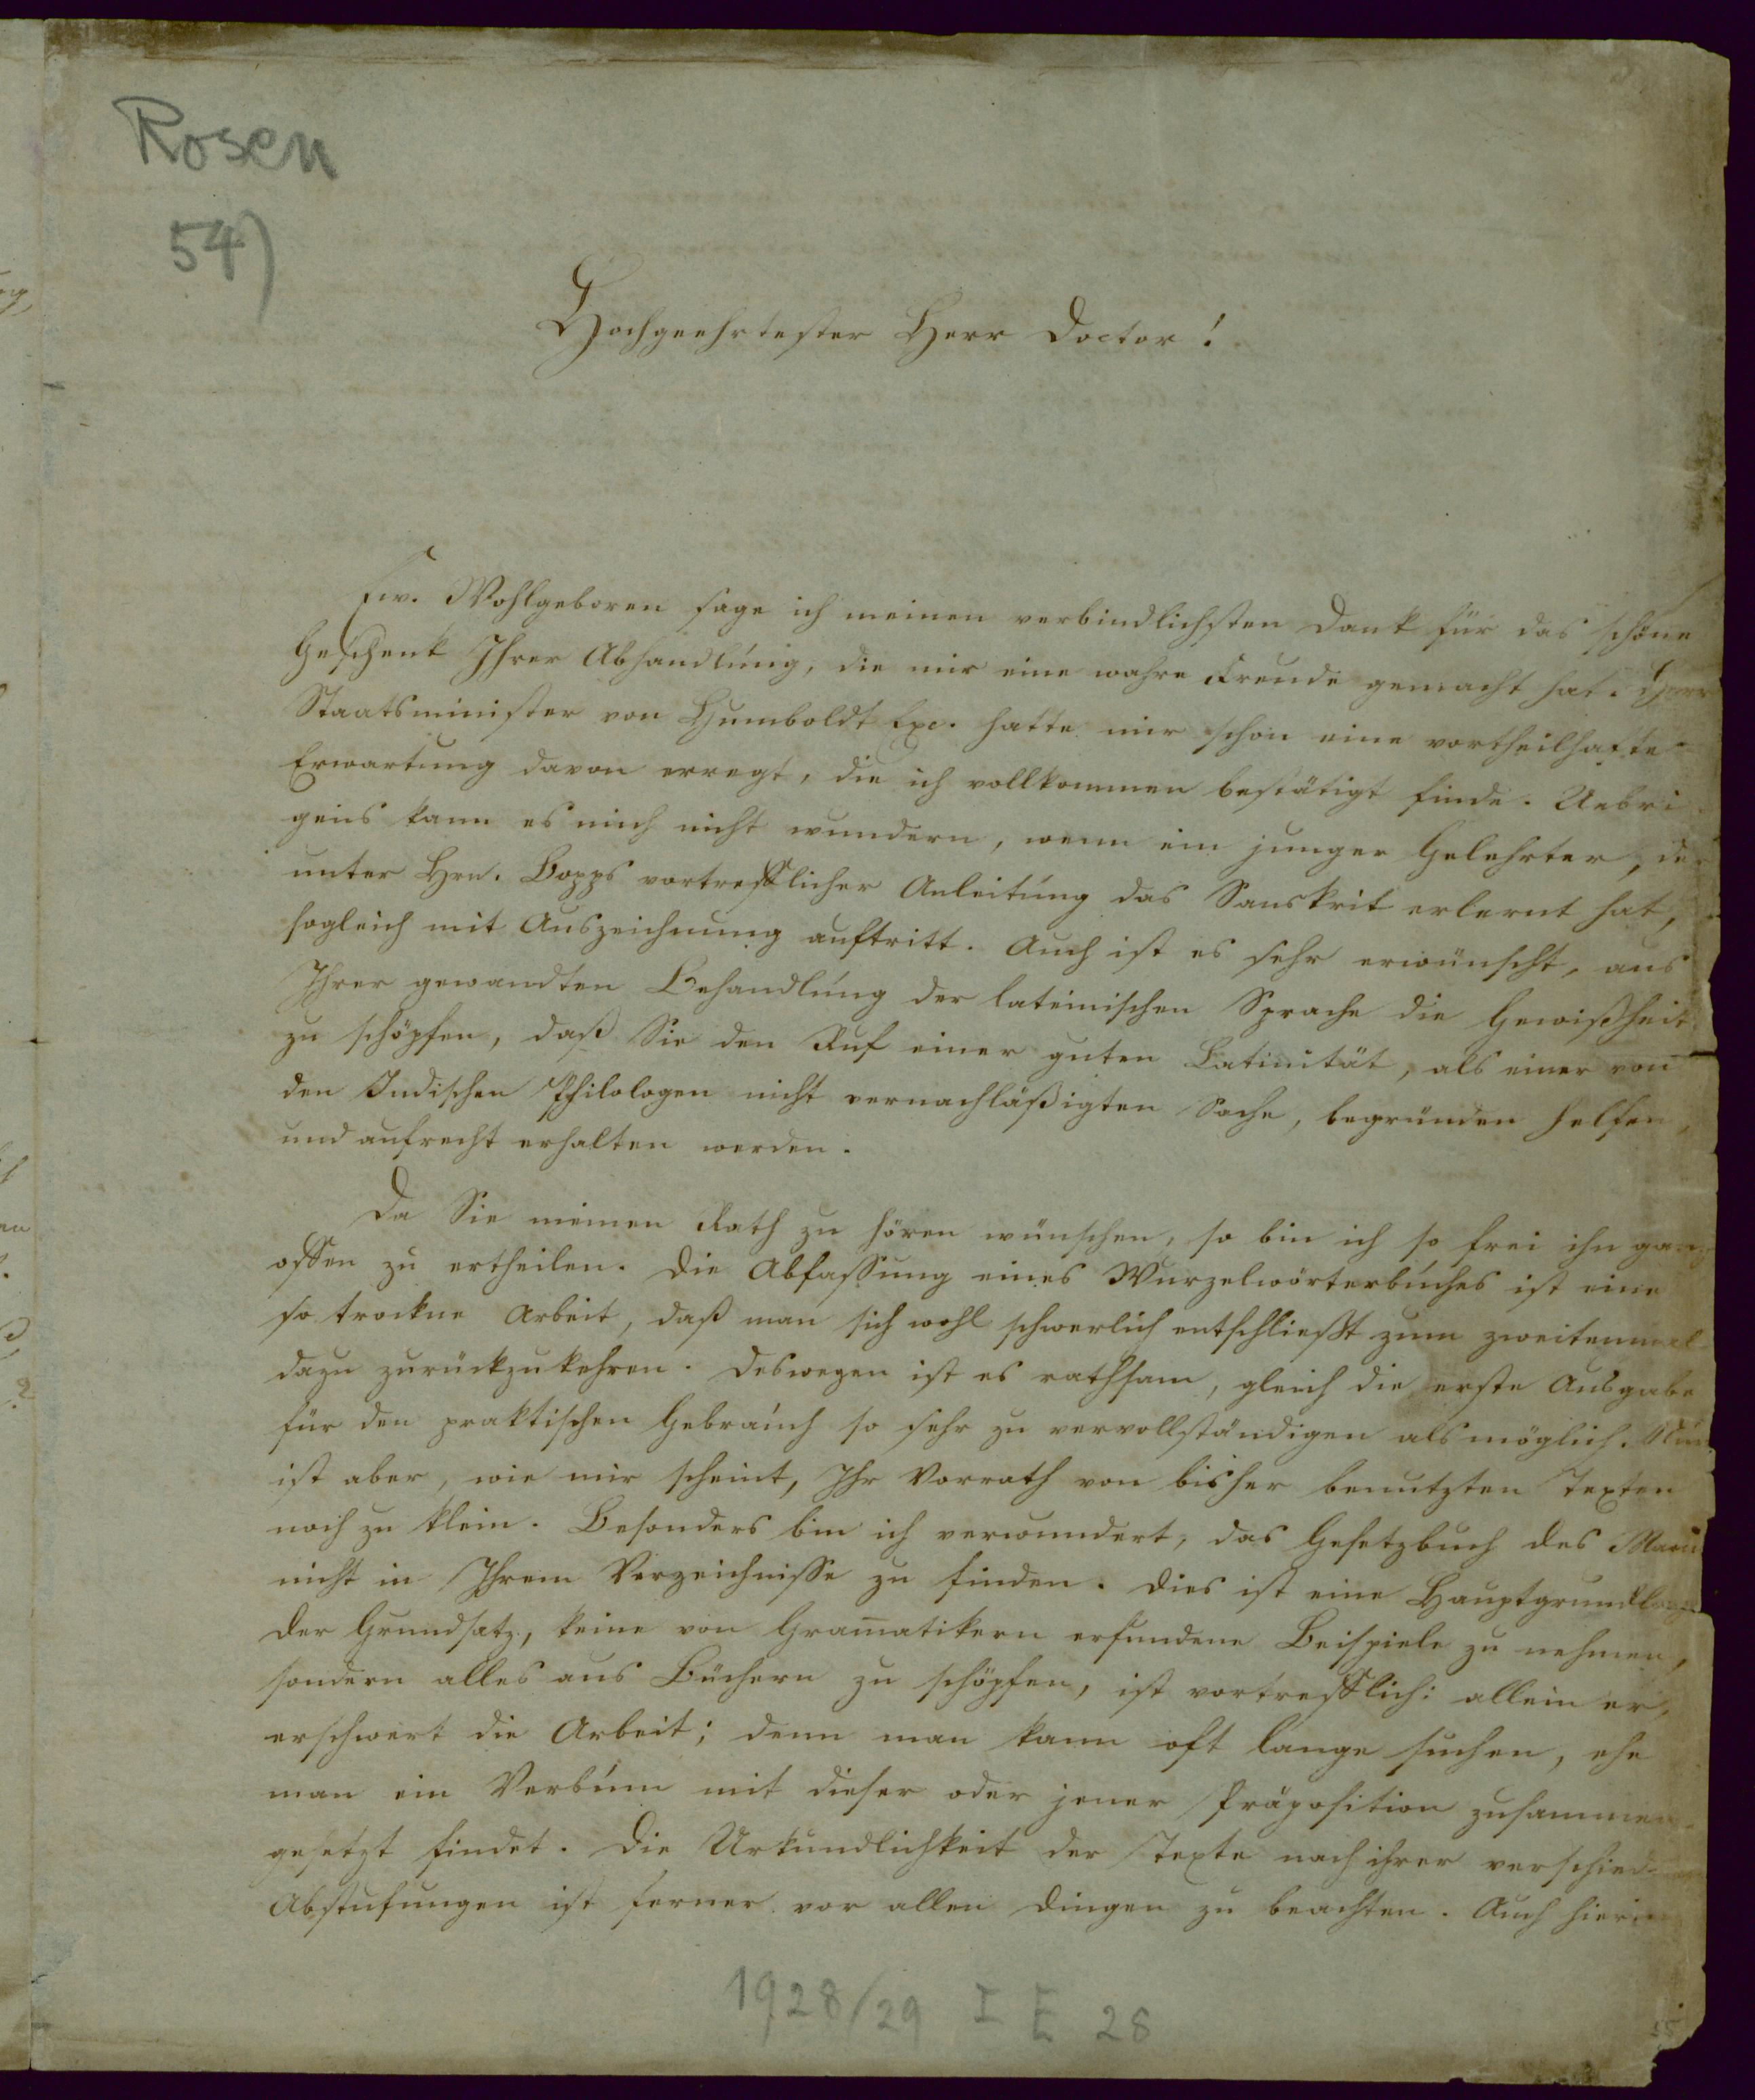 Rosen
54)
Hochgeehrtester Herr Doctor!
Ew. Wohlgeboren sage ich meinen verbindlichsten Dank für das schöne
Geschenk Ihrer Abhandlung, die mir eine wahre Freude gemacht hat. Herr
Staatsminister von Humboldt Exc. hatte mir schon eine vortheilhafte
Erwartung davon erregt, die ich vollkommen bestätigt finde. Uebri
gens kann es mich nicht wundern, wenn ein junger Gelehrter, der
unter Hrn. Bopps vortrefflicher Anleitung das Sanskrit erlernt hat,
sogleich mit Auszeichnung auftritt. Auch ist es sehr erwünscht, aus
Ihrer gewandten Behandlung der lateinischen Sprache die Gewißheit
zu schöpfen, daß Sie den Ruf einer guten Latinität, als einer von
den Indischen Philologen nicht vernachläßigten Sache, begründen helfen,
und aufrecht erhalten werden.
Da Sie meinen Rath zu hören wünschen, so bin ich so frei ihn ganz
offen zu ertheilen. Die Abfassung eines Wurzelwörterbuches ist eine
so trockne Arbeit, daß man sich wohl schwerlich entschließt zum zweitenmal
dazu zurückzukehren. Deswegen ist es rathsam, gleich die erste Ausgabe
für den praktischen Gebrauch so sehr zu vervollständigen als möglich. Nun
ist aber, wie mir scheint, Ihr Vorrath von bisher benutzten Texten
noch zu klein. Besonders bin ich verwundert, das Gesetzbuch des Manu
nicht in Ihrem Verzeichnisse zu finden. Dies ist eine Hauptgrundlage
Der Grundsatz, keine von Gramatikern erfundene Beispiele zu nehmen,
sondern alles aus Büchern zu schöpfen, ist vortrefflich: allein er
erschwert die Arbeit; denn man kann oft lange suchen, ehe
man ein Verbum mit dieser oder jener Präposition zusammen
gesetzt findet. Die Urkundlichkeit der Texte nach ihrer verschiednen
Abstufungen ist ferner vor allen Dingen zu beachten. Auch hierin
1928/29 I E 28